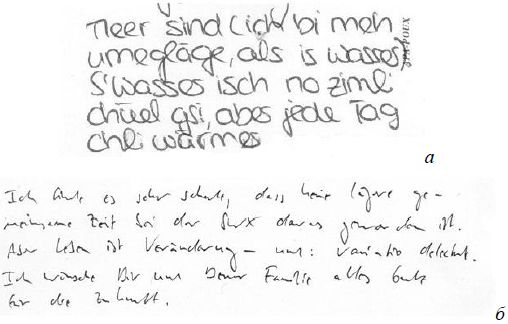 Meer sind (ich) bi meh
umegläge, als is wasser
S'wasser isch no zimli
chüel gsi, aber jede Tag
chli wärmer
а
Ich finde es sehr schade, dass keine längere ge-
meinsame Zeit bei der daraus geworden ist.
Aber Leben ist Veränderung – und: variatio delectat.
Ich wünsche Dir und Deiner Familie alles Gute
für die Zukunft.
б